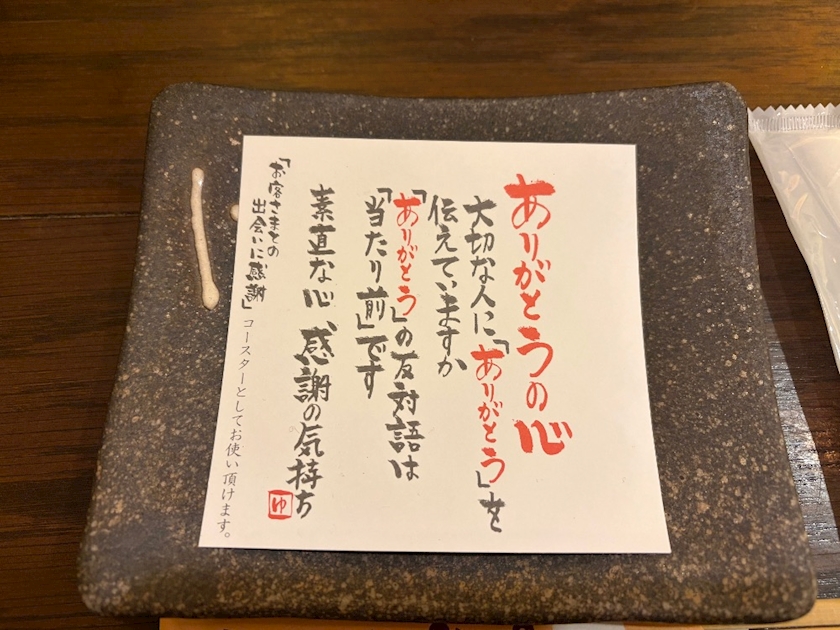 ありがとうの心
大切な人に「ありがとう」を
伝えていますか
「ありがとう」の反対語は
「当たり前」です
素直な心、感謝の気持ち
ゆ
「お客さまとの
出会いに感謝」
コースターとしてお使い頂けます。